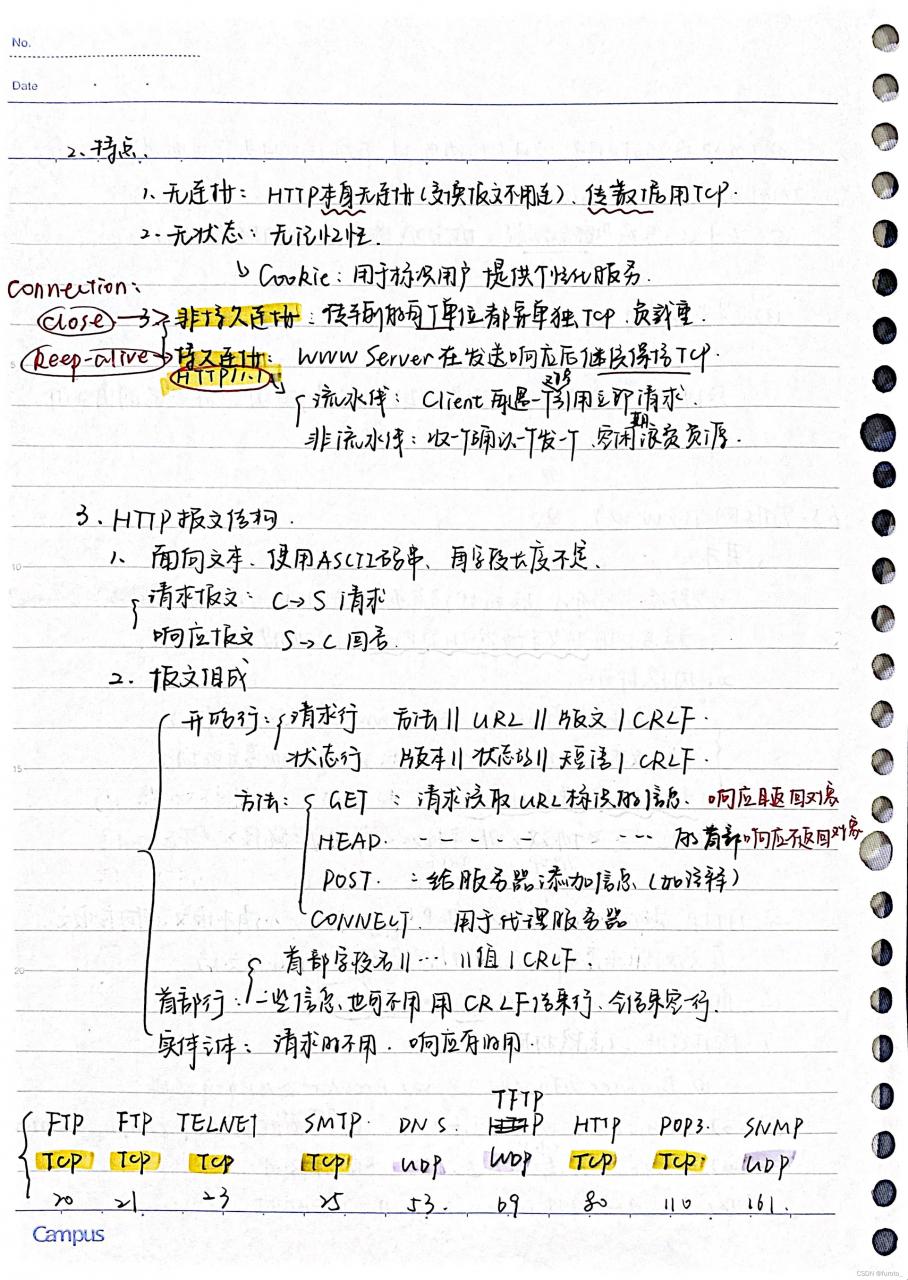 No.
Date
2、特点、
1、无连接: HTTP本身无连接(交换报文不用连)、传数据用TCP.
2、无状态: 无记忆性.
↳ Cookie: 用于标识用户 提供个性化服务.
Connection:
close → 3、非持久连接: 传到的每个单位都另单独TCP. 负载重.
keep-alive 持久连接: WWW Server 在发送响应后继续保持TCP.
HTTP/1.1
流水线: Client 每遇一个对象引用立即请求.
非流水线: 收一个确认一个发一个 空闲期浪费资源.
3、HTTP报文结构.
1、面向文本、使用ASCII码串、每字段长度不定.
请求报文: C→S 请求
响应报文 S→C 回答.
2、报文组成
开始行: 请求行 方法 || URL || 版文 | CRLF.
状态行 版本 || 状态码 || 短语 | CRLF.
方法: GET : 请求读取URL标识的信息、响应且返回对象
HEAD. - - - - - ... 的首部 响应不返回对象
POST. : 给服务器添加信息 (加注释)
CONNECT. 用于代理服务器
首部字段名 || ... || 值 | CRLF.
首部行: 一些信息、也可不用 用CRLF结束行、全结束空一行.
实体主体: 请求的不用. 响应有的用.
TFTP
FTP FTP TELNET SMTP. DNS. HTTP POP3. SNMP
TCP TCP TCP TCP UDP UDP TCP TCP UDP
20 21 23 25 53. 69 80 110 161.
Campus
CSDN @furoto_